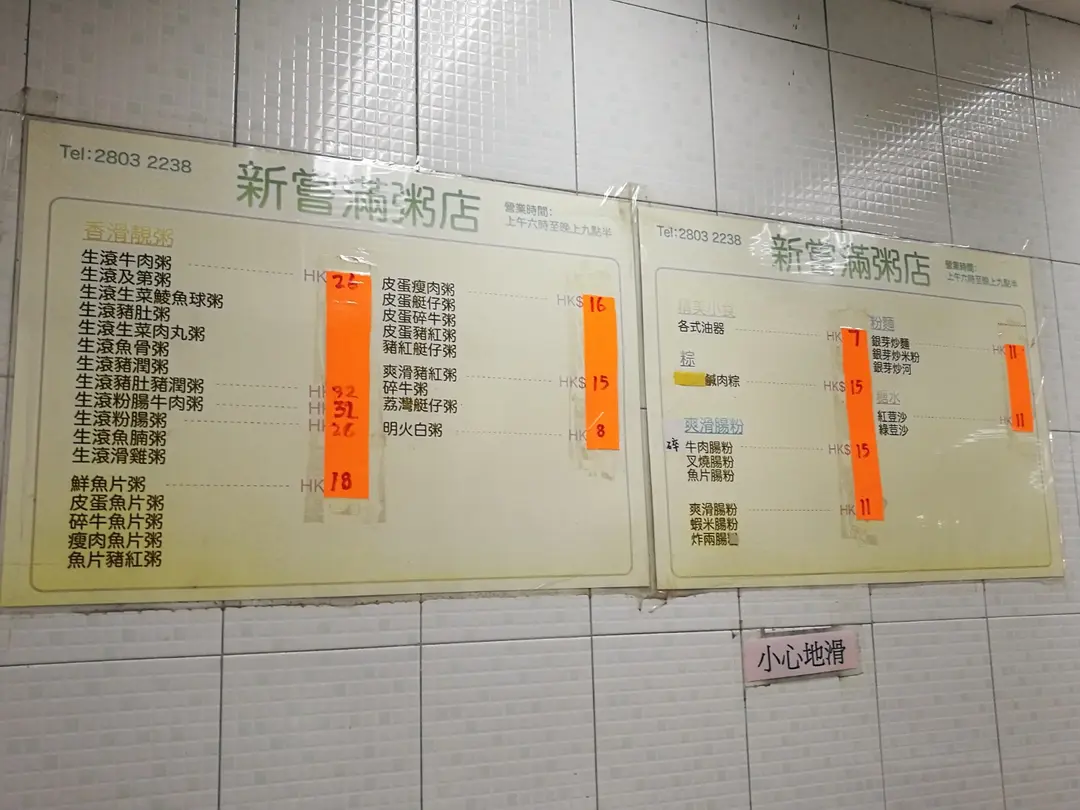 Tel:2803 2238
新嘗滿粥店
營業時間:
上午六時至晚上九點半
香滑靚粥
生滾牛肉粥 HK 26
生滾及第粥
生滾生菜鯪魚球粥
生滾豬肚粥
生滾生菜肉丸粥
生滾魚骨粥
生滾豬潤粥
生滾豬肚豬潤粥 HK 32
生滾粉腸牛肉粥 HK 31
生滾粉腸粥 HK 26
生滾魚腩粥
生滾滑雞粥
鮮魚片粥 HK 18
皮蛋魚片粥
碎牛魚片粥
瘦肉魚片粥
魚片豬紅粥
皮蛋瘦肉粥 HK$ 16
皮蛋艇仔粥
皮蛋碎牛粥
皮蛋豬紅粥
豬紅艇仔粥
爽滑豬紅粥 HK$ 15
碎牛粥
荔灣艇仔粥
明火白粥 HK 8
Tel:2803 2238
新嘗滿粥店
營業時間:
上午六時至晚上九點半
精美小食
各式油器 HK 7
粽
鹹肉粽 HK$ 15
爽滑腸粉
碎 牛肉腸粉 HK$ 15
叉燒腸粉
魚片腸粉
爽滑腸粉 HK 11
蝦米腸粉
炸兩腸
粉麵
銀芽炒麵 HK 11
銀芽炒米粉
銀芽炒河
糖水
紅荳沙 HK 11
綠荳沙
小心地滑